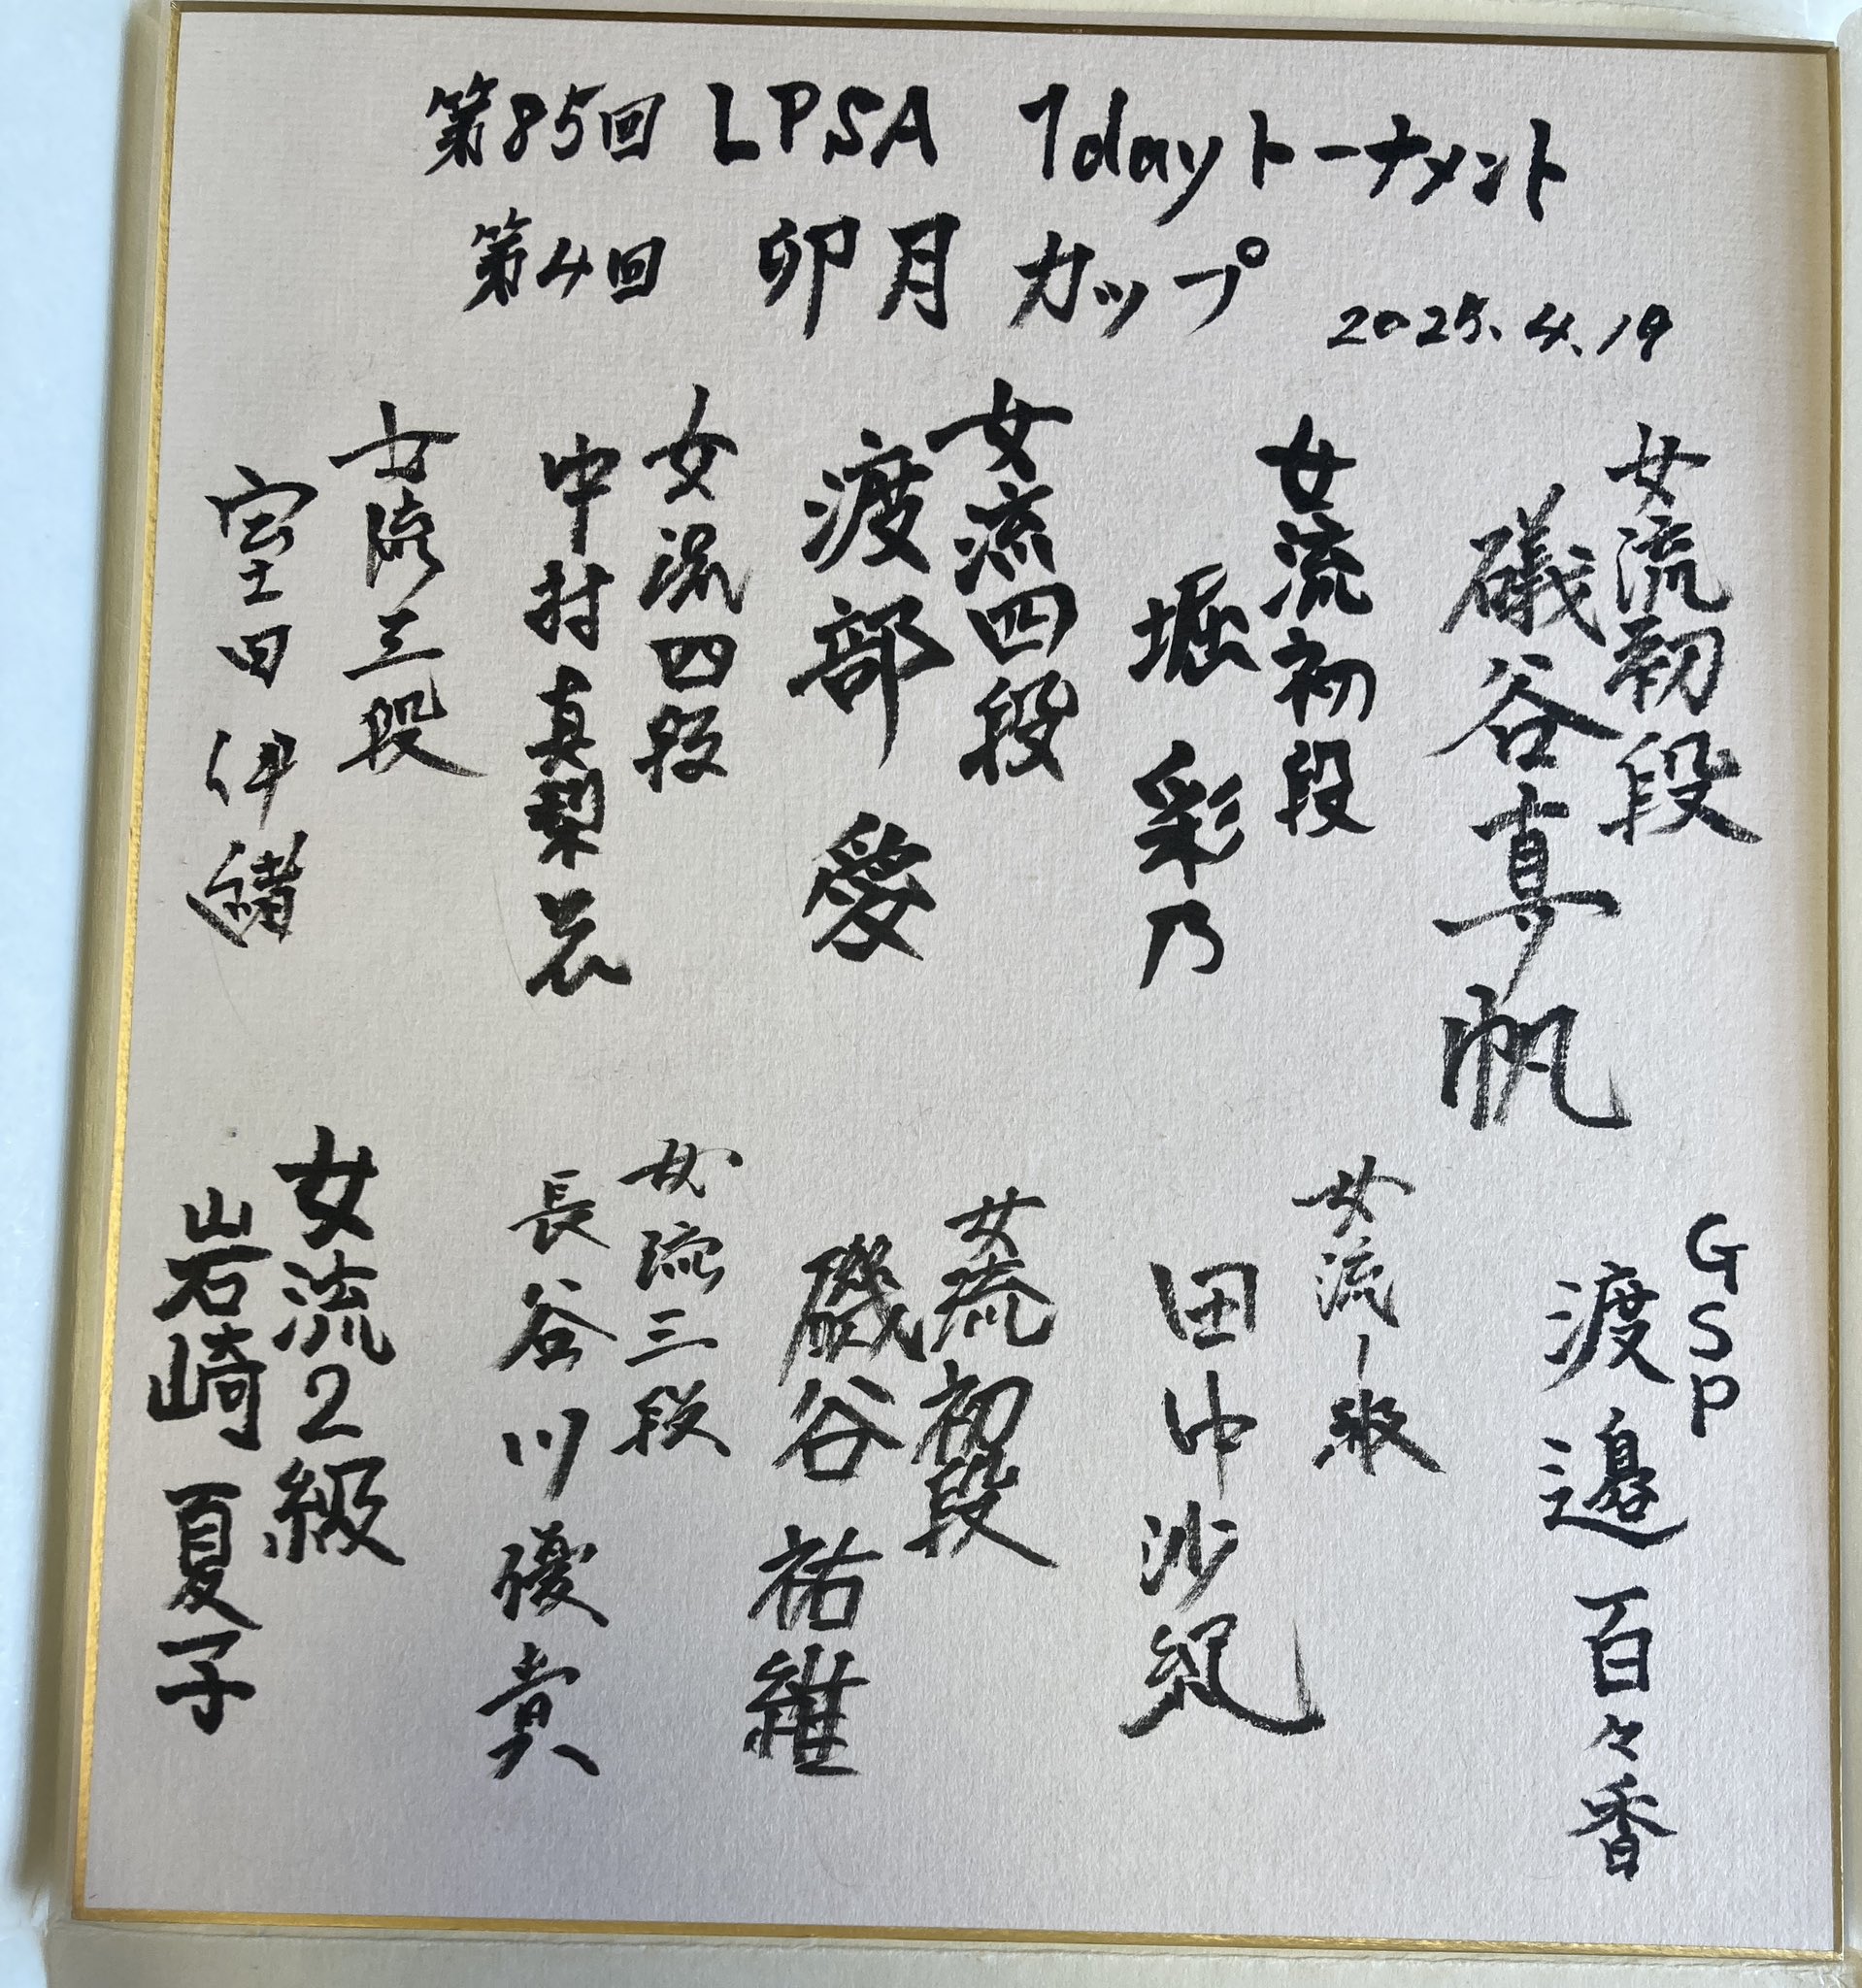 第85回 LPSA 1dayトーナメント
第4回 卯月カップ
2025.4.19
女流初段
礒谷真帆
女流初段
堀彩乃
女流四段
渡部愛
女流四段
中村真梨花
女流三段
室田伊緒
GSP
渡邉百々香
女流1級
田中沙紀
女流初段
磯谷祐維
女流三段
長谷川優貴
女流2級
岩崎夏子